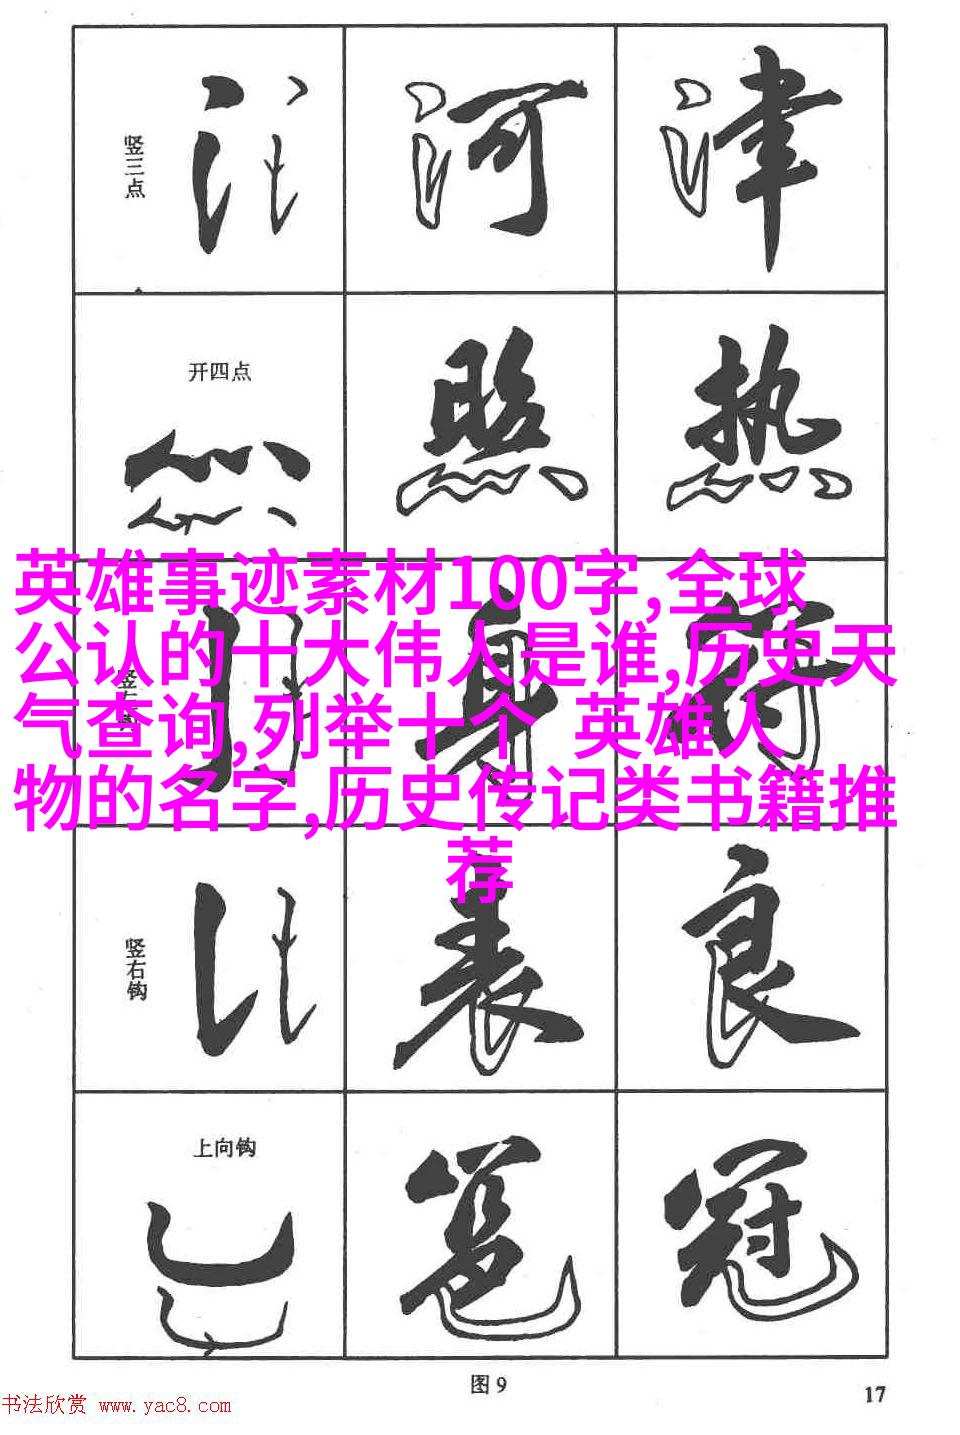 竖三点
河
津
开四点
照
热
英雄事迹素材100字,全球
公认的十大伟人是谁,历史天
气查询,列举十个 英雄人
物的名字,历史传记类书籍推
荐
身
符
竖右钩
表
良
上向钩
笔
冠
图9
17
书法欣赏 www.yac8.com